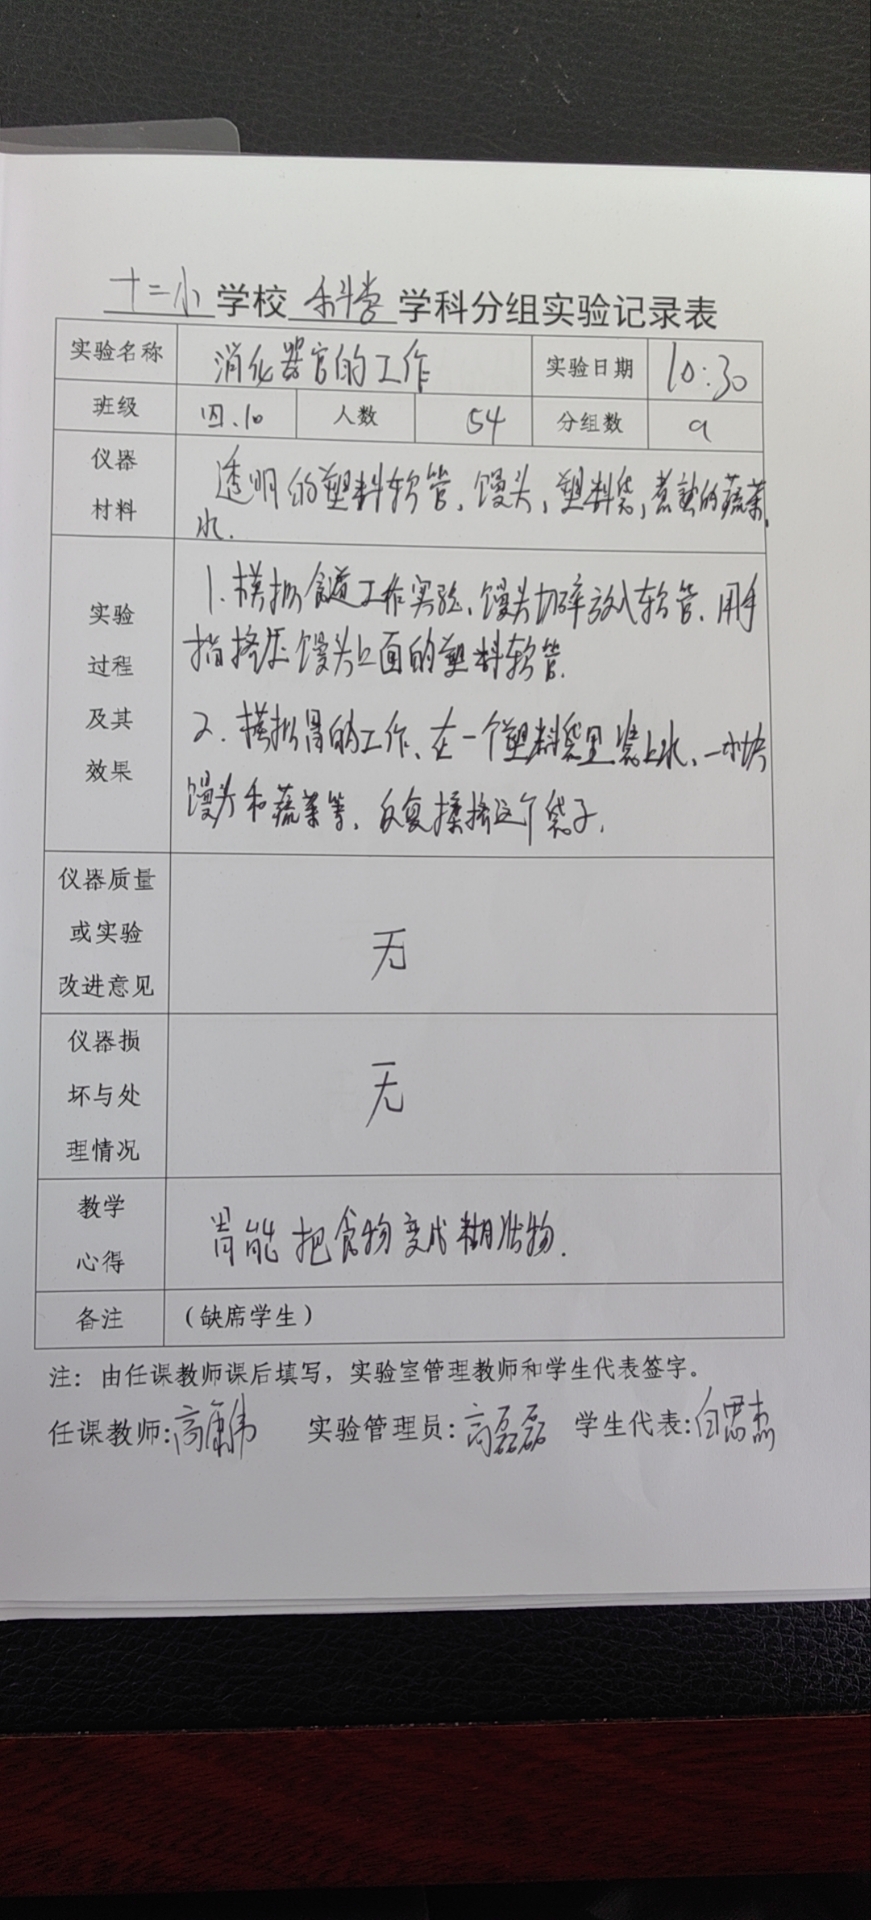 十二小学校科学学科分组实验记录表
实验名称 消化器官的工作 实验日期 10:30
班级 四.10 人数 54 分组数 9
仪器
材料
透明的塑料软管、馒头,塑料袋,煮熟的蔬菜、
水.
实验
过程
及其
效果
1.模拟食道工作实验、馒头切碎放入软管.用手
指挤压馒头上面的塑料软管.
2.模拟胃的工作、在一个塑料袋里装上水、一小块
馒头和蔬菜等、反复揉搓这个袋子.
仪器质量
或实验
改进意见
无
仪器损
坏与处
理情况
无
教学
心得
胃能把食物变成糊状物.
备注 (缺席学生)
注:由任课教师课后填写,实验室管理教师和学生代表签字。
任课教师:高康伟 实验管理员:高磊磊 学生代表:白思杰